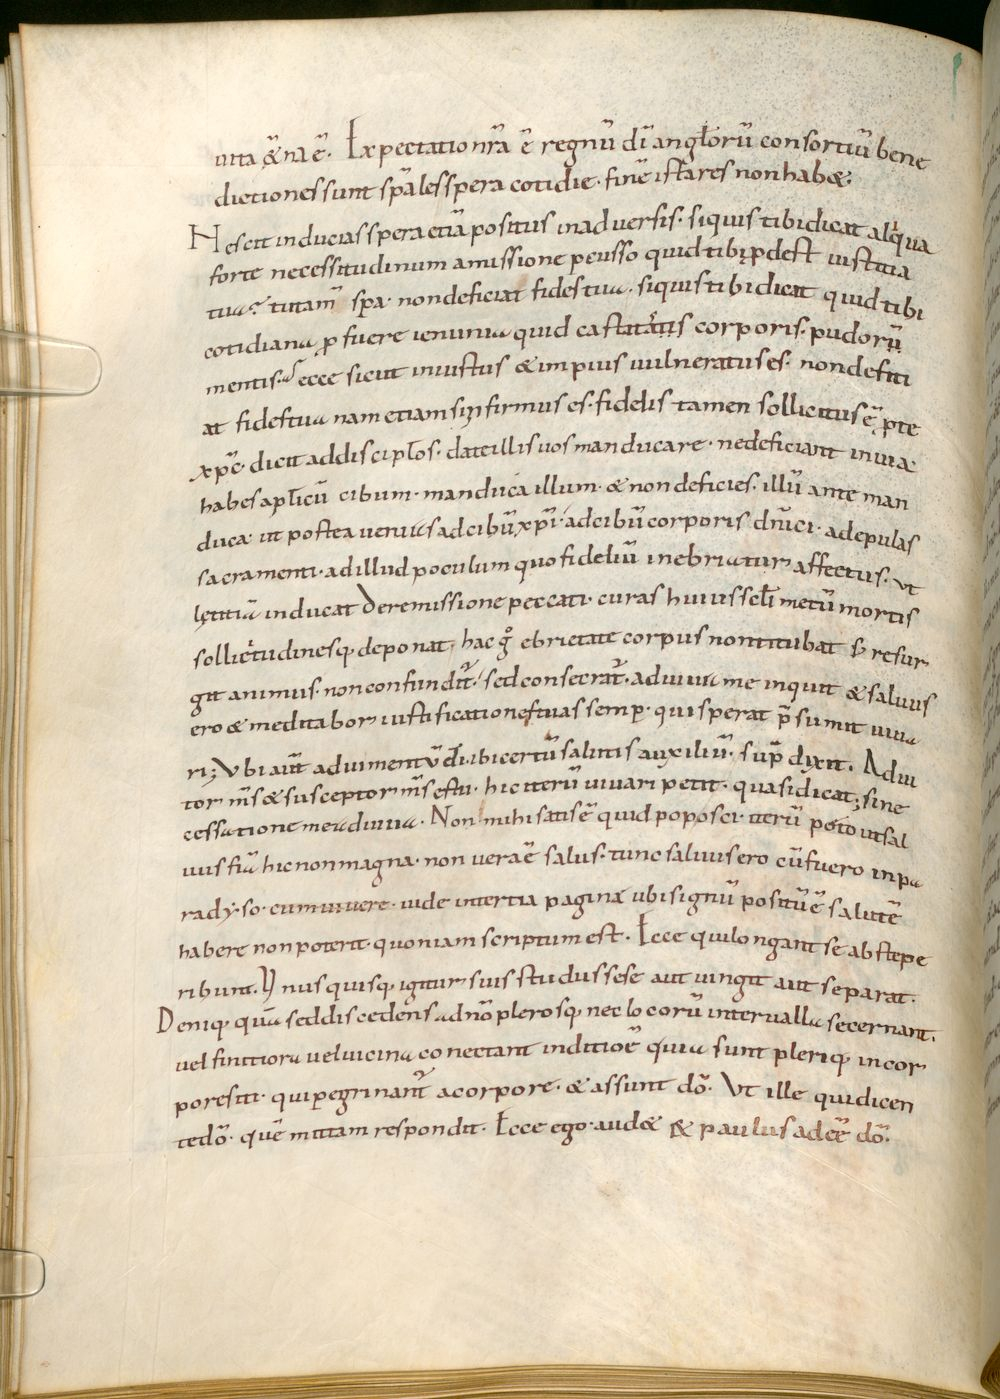 uita &na ē. Expectatio nr̄a ē regnū dī anglorū consortiū bene
dictiones sunt sp̄ales spera cotidie. fine istares non habæ.
Nescit inducias spera etiā positus inaduersis. siquis tibi dicat aliqua
forte necessitudinum amissione pcusso quid tibi pdest iustitia
tua? tutam̄ spa. non deficiat fides tua. siquis tibi dicat quid tibi
cotidiana pfuere ieiunia quid castitatis corporis. pudorū
mentis? ecce sicut iniustus & impius uulneratus es. non defici
at fides tua nam etiam si infirmus es. fidelis tamen sollicitus ē pte
xp̄c. dicit addiscipl̄os. date illis uos manducare. ne deficiant inuia.
habes apl̄icū cibum. manduca illum. & non deficies. illū ante man
duca ut postea uenias ad cibū xp̄i. ad cibū corporis dn̄ici. adepulas
sacramenti. ad illud poculum quo fideliū inebriatur affectus. ut
lętitiā inducat de remissione peccati. curas huius scl̄i metū mortis
sollicitudinesq; deponat. hac gͦ ebrietate corpus non titubat s; resur
git animus. non confundit̄. sed consecrat̄. adiuua me inquit & saluus
ero & meditabor iustificationes tuas semp. qui sperat p̄sumit iuua
ri; Ubi aūt adiumentū dī. ibi certū salutis auxiliū. sup̄ dixit. Adiu
tor m̄s & susceptor m̄s es tu. hic iterū iuuari petit. quasi dicat; sine
cessatione me adiuua. Non mihi satis ē quid poposci. iterū peto ut sal
uus fiā hic non magna. non uera ē salus. tunc saluus ero cū fuero inpa
radyso. cum uiuere. uide intertia pagina ubi signū positū ē salutē
habere non poterit. quoniam scriptum est. Ecce qui longant se abs te pe
ribunt. Unusquisq; igitur suis studiis sese aut iungit aut separat.
Deniq; quā sed discedens adn̄o plerosq; nec locorū interualla secernant.
uel finitiora uel uicina conectant inditio ē quia sunt pleriq; incor
pore siti. qui peregrinant̄ acorpore. & assunt dō. Ut ille qui dicen
te dō. quē mittam respondit. Ecce ego. audæ & paulus adeē dō.